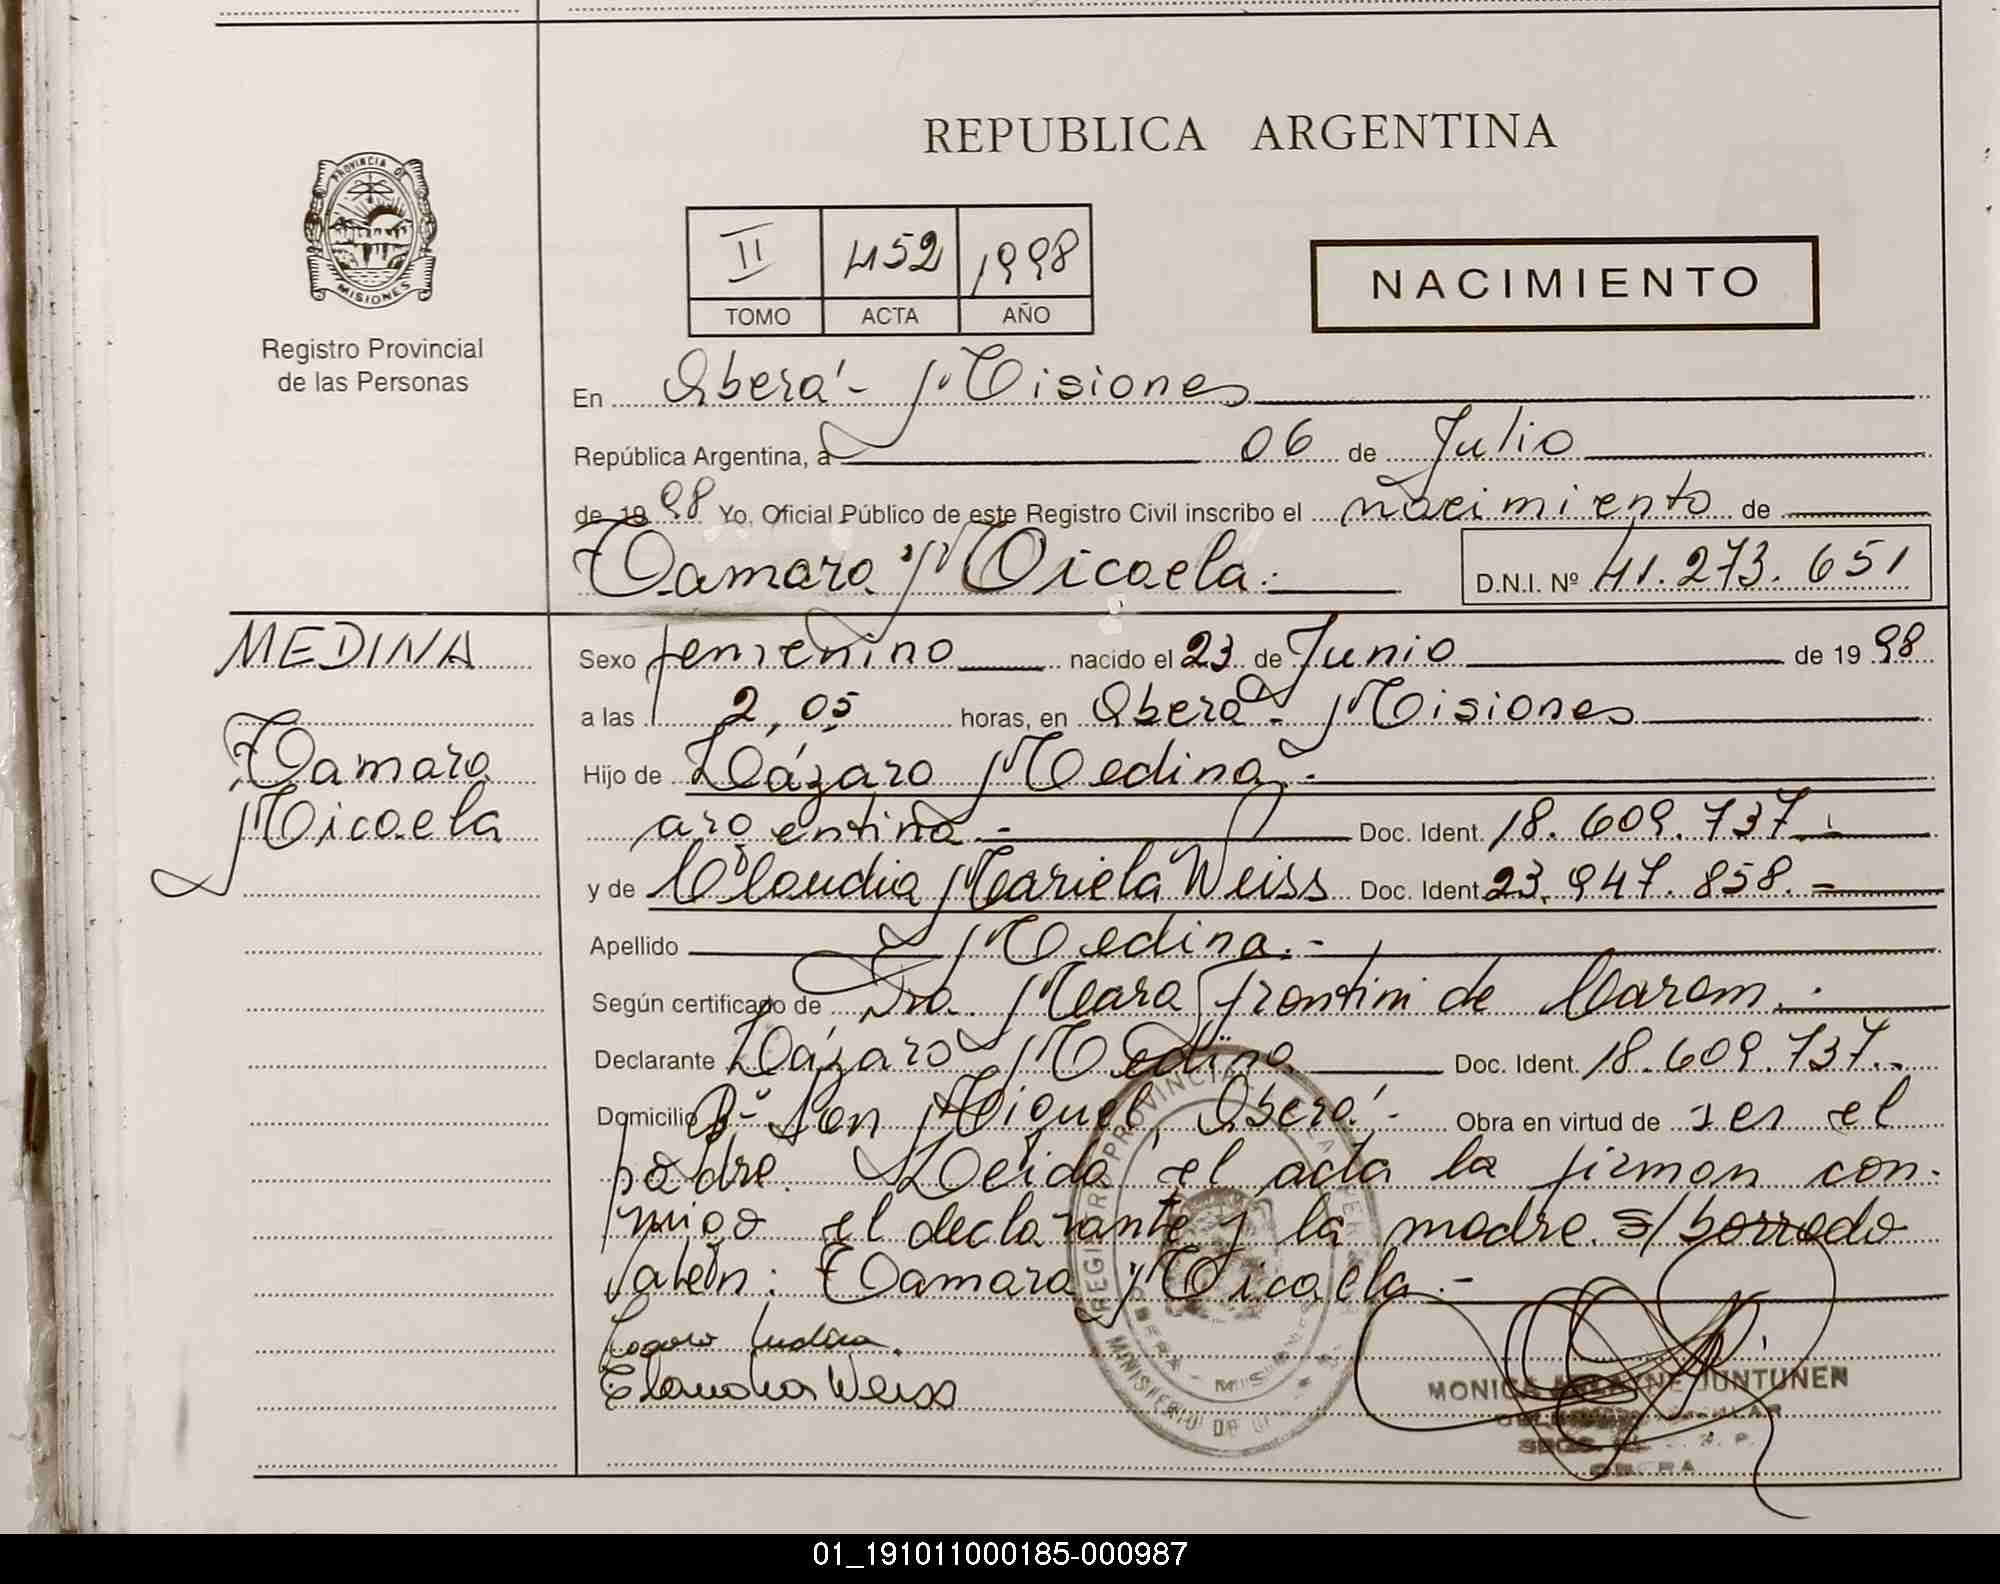 REPUBLICA ARGENTINA
PROVINCIA DE
MISIONES
Registro Provincial
de las Personas
II 452 1998
TOMO ACTA AÑO
NACIMIENTO
En Oberá - Misiones
República Argentina, a 06 de Julio
de 1998 Yo, Oficial Público de este Registro Civil inscribo el nacimiento de
Tamara Micaela.
D.N.I. Nº 41.273.651
MEDINA
Tamara
Micaela
Sexo femenino nacido el 23 de Junio de 1998
a las 2,05 horas, en Oberá - Misiones
Hijo de Lázaro Medina.-
argentina.- Doc. Ident. 18.609.737.-
y de Claudia Mariela Weiss Doc. Ident. 23.947.858.-
Apellido Medina.-
Según certificado de Dra. Mara Frontini de Marom.-
Declarante Lázaro Medina Doc. Ident. 18.609.737.-
Domicilio Bº San Miguel, Oberá.- Obra en virtud de ser el
padre. Leída el acta la firman con-
migo el declarante y la madre. s/borrado
Valen: Tamara Micaela.-
Lazaro Medina.
Claudia Weiss
REGISTRO PROVINCIAL DE LAS PER
OBERA - MISIONES
MINISTERIO DE
MONICA JUNTUNEN
OBERA
01_191011000185-000987